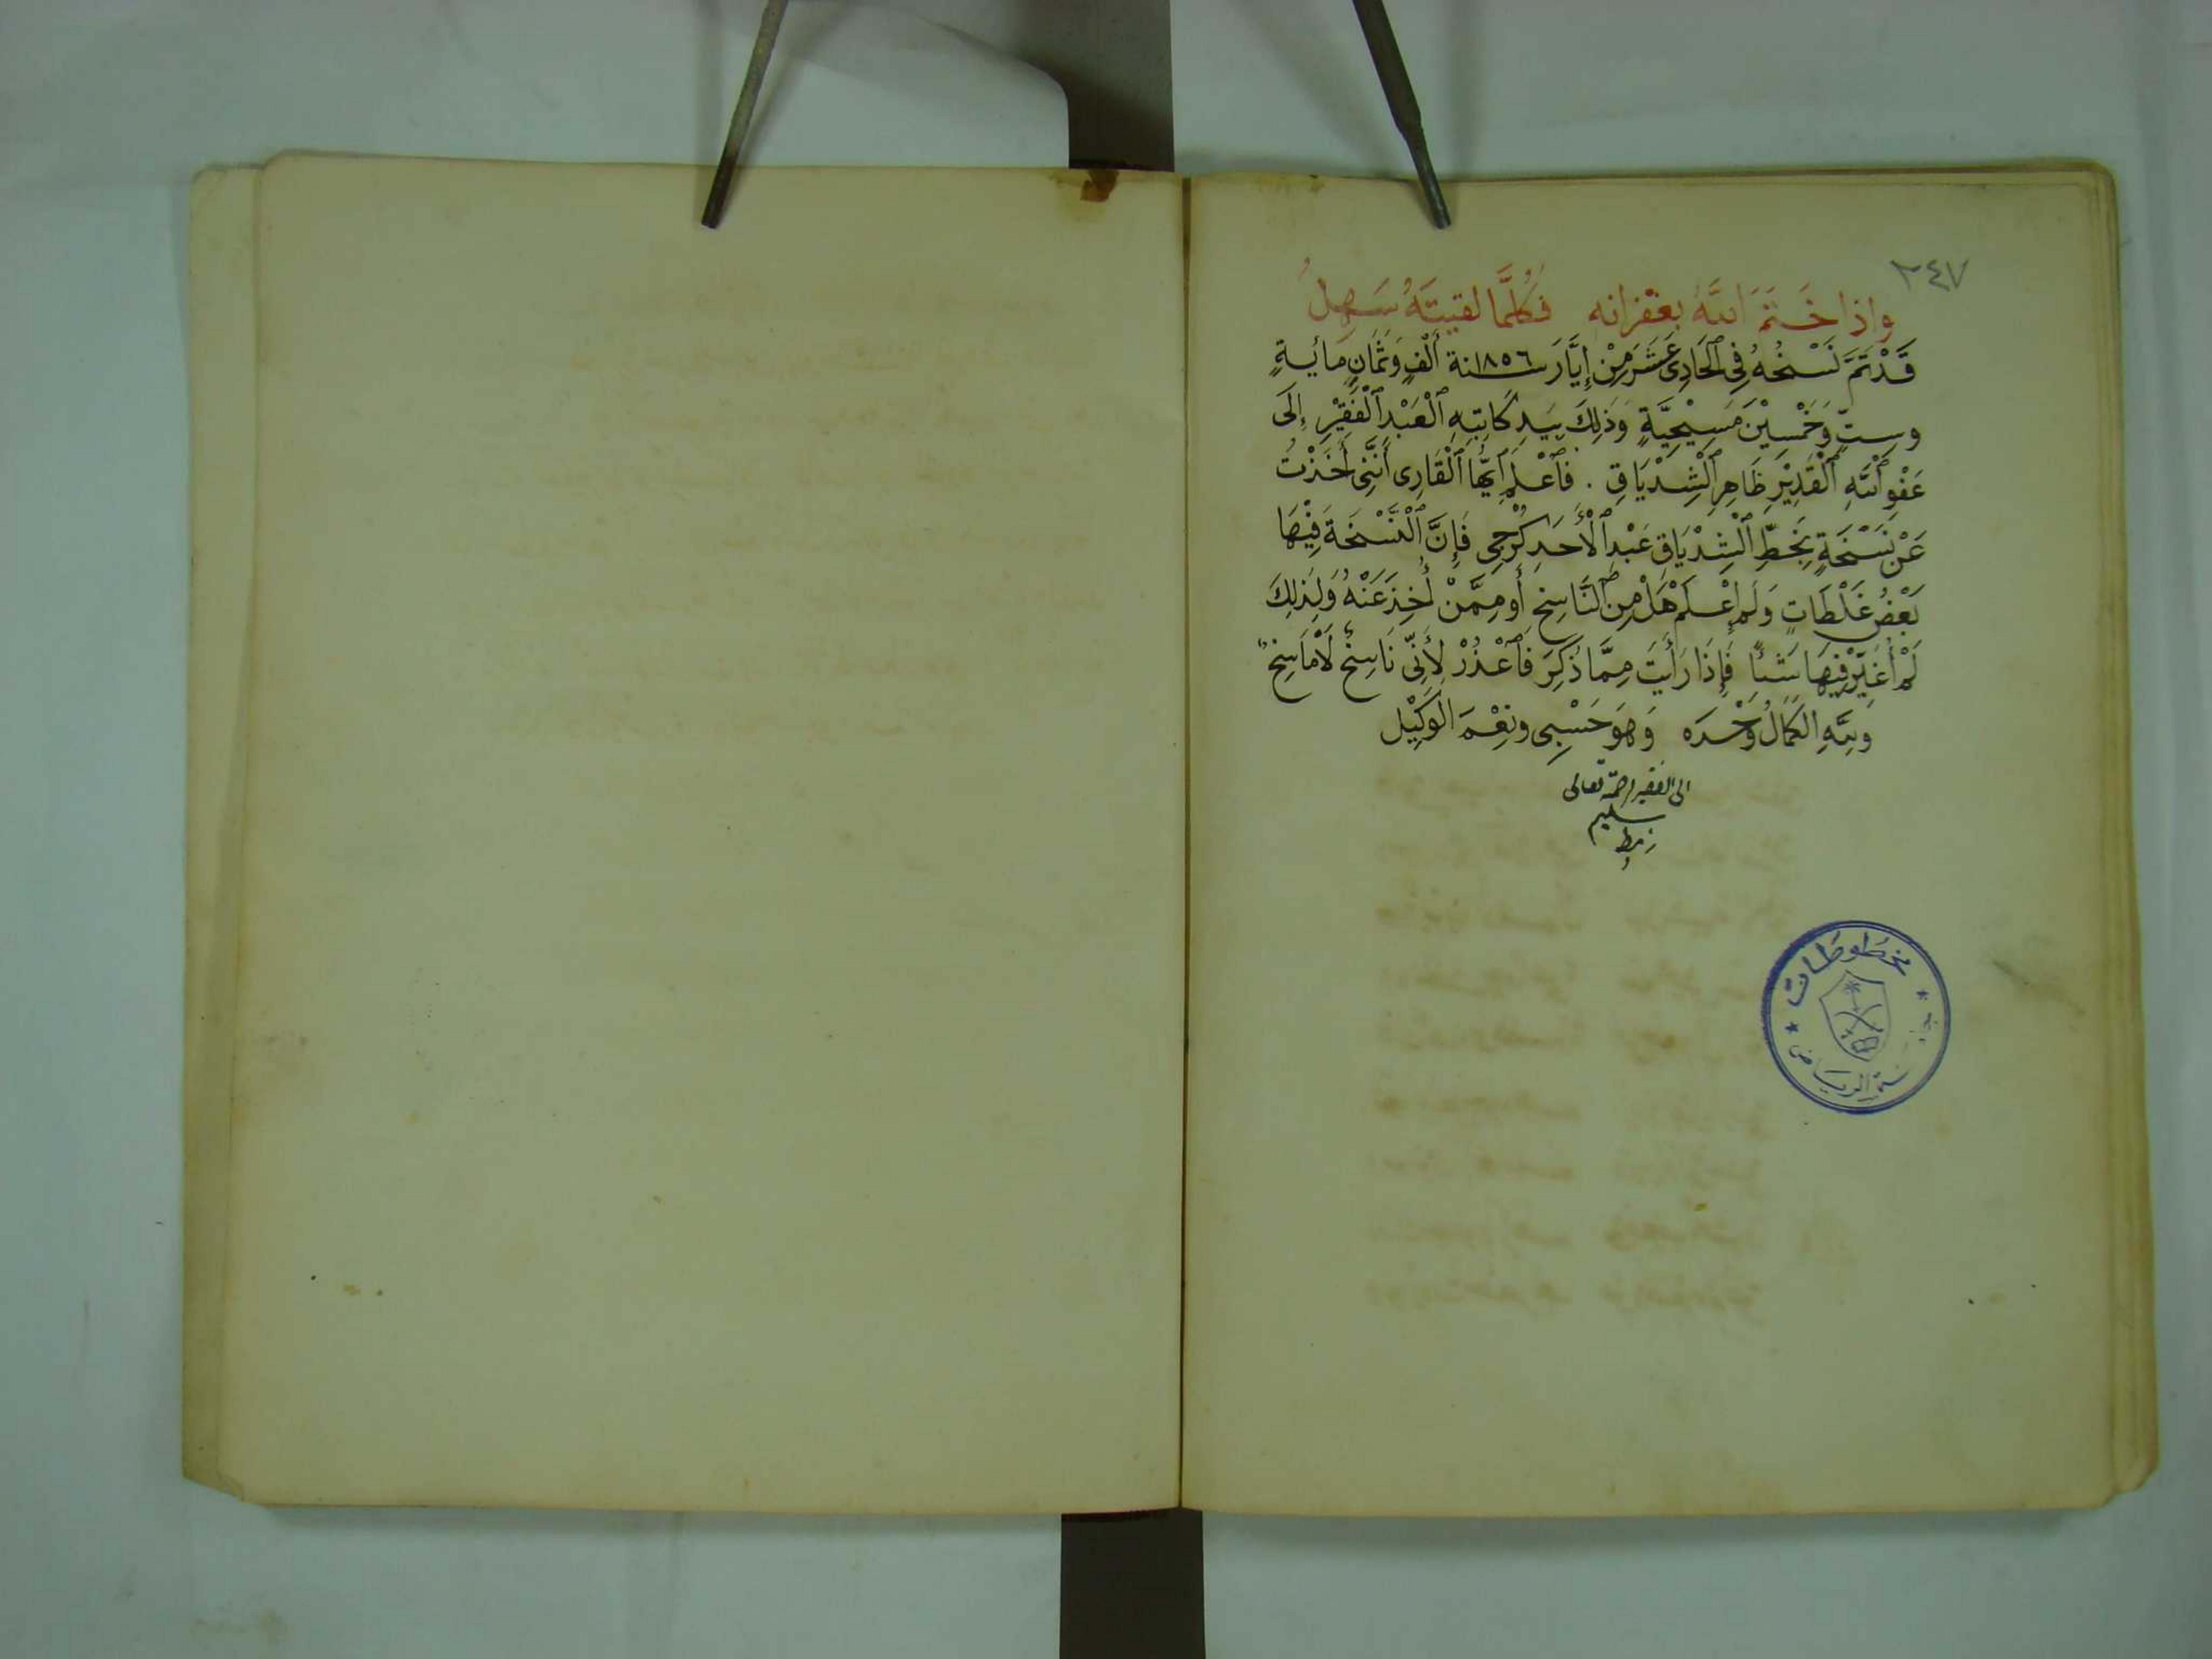 ٢٤٧
واذا خَتَمَ اللهُ بغفرانه فكُلَّما لقيتَهُ سَهلُ
قَدْ تَمَّ نَسْخُهُ فِي ٱلْحَادِي عَشَرَ مِنْ إِيَّارَ سنة ١٨٥٦ أَلْفٍ وَثَمَانِ مائيةٍ
وستٍّ وَخَمْسِيْنَ مَسِيْحِيَّةٍ وَذٰلِكَ بِيَدِ كَاتِبِهِ ٱلْعَبْدِ ٱلْفَقِيْرِ إِلَى
عَفْوِ ٱللهِ ٱلْقَدِيْرِ ظَاهِرِ ٱلْشِدْيَاقِ . فَٱعْلَمْ اَيُّهَا ٱلْقَارِى أَنَّنِي أَخَذْتُ
عَنْ نَسْخَةٍ بِخَطِّ ٱلْشِدْيَاق عَبْدِ ٱلْأَحَدِ كُرْجِي فَإِنَّ ٱلْنَّسْخَةَ فِيْهَا
بَعْضُ غَلْطَاتٍ وَلَم إِعْلَمْ هَلْ مِن ٱلنَّاسِخِ أَو مِمَّنْ أُخِذَ عَنْهُ وَلِذٰلِكَ
لَمْ أُغَيِّرْ فِيهَا شَئًا فَإِذَا رَأَيتَ مِمَّا ذُكِرَ فَٱعْذُرْ لِأَنِّي نَاسِخٌ لَامَاسِخٌ
وَللهِ الكَمَالُ وَحْدَه وَهوَ حَسْبِي ونِعْمَ الوَكِيْل
الى الفقير رحمة تعالى
سليم
مخطوطات
جامعة الرياض